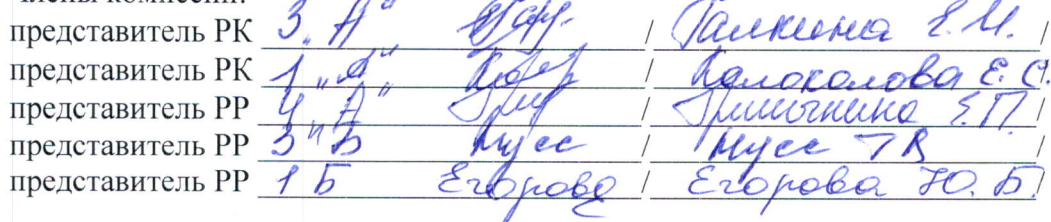 Члены комиссии:
представитель РК 3 „А“ / Галкина Е.М. /
представитель РК 1 „А“ / Колоколова Е.С.
представитель РР 4 „А“ / Е.П. /
представитель РР 3 "Б Мусс / Мусс
представитель РР 1 Б Егорова / Егорова Ю.Б. /